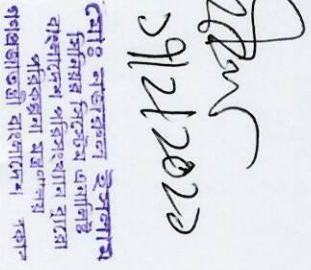 ১৭/২/২০২০
মোঃ নজরুল ইসলাম
সিনিয়র সিস্টেম এনালিস্ট
বাংলাদেশ পরিসংখ্যান ব্যুরো
পরিকল্পনা মন্ত্রণালয়
গণপ্রজাতন্ত্রী বাংলাদেশ